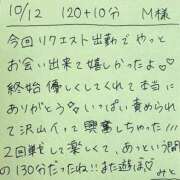 10/12 120+10分 M様
今回リクエスト出勤でやっと
お会い出来て嬉しかったよ♡
終始優しくしてくれて本当に
ありがとう♡いっぱい責められ
て沢山イって興奮しちゃった!!!
2回戦して楽しくて、あっという間
の130分だったね!!また遊ぼ♡
みと